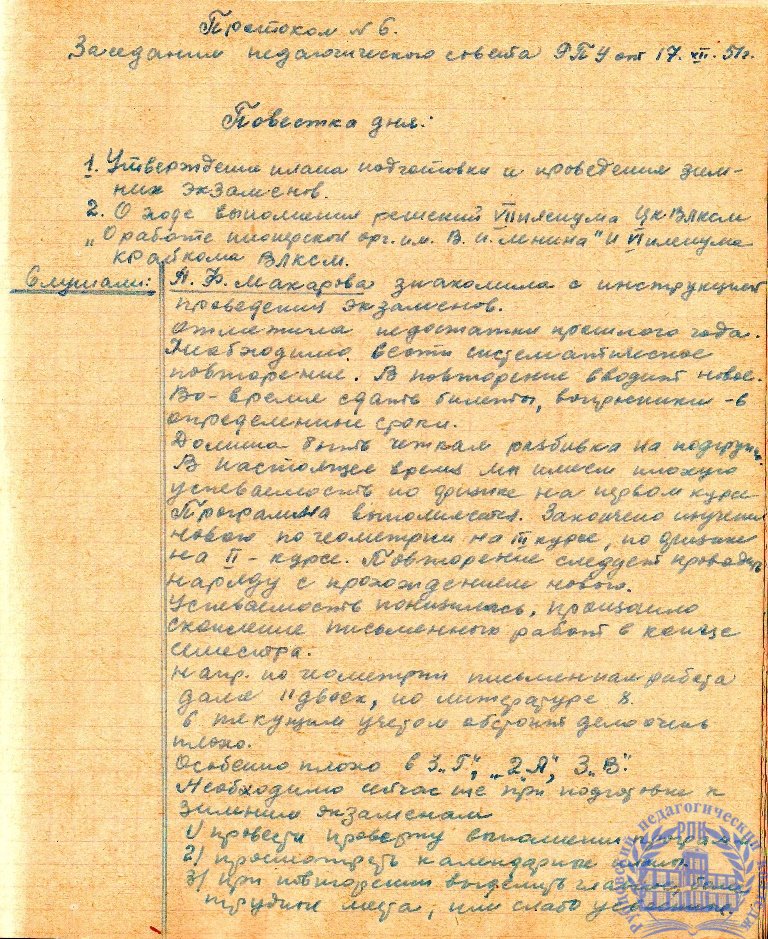 Протокол № 6.
Заседания педагогического совета РПУ от 17. XII. 51г.
Повестка дня:
1. Утверждение плана подготовки и проведения зим-
них экзаменов.
2. О ходе выполнения решений VII пленума ЦК ВЛКСМ
„О работе пионерской орг. им. В. И. Ленина" и VI пленума
крайкома ВЛКСМ.
Слушали: А. Ф. Макарова знакомила с инструкцией
проведения экзаменов.
Отметила недостатки прошлого года.
Необходимо вести систематическое
повторение. В повторение вводит новое.
Во-время сдать билеты, вопросники - в
определенные сроки.
Должна быть четкая разбивка на подгруппы.
В настоящее время мы имеем плохую
успеваемость по физике на первом курсе
Программа выполняется. Закончено изучение
нового по геометрии на III курсе, по физике
на II - курсе. Повторение следует проводить
наряду с прохождением нового.
Успеваемость понизилась, произошло
скопление письменного работ в конце
семестра.
Напр. по геометрии письменная работа
дала 11 двоек, по литературе 8.
В текущим учетом обстоит дело очень
плохо.
Особенно плохо в 3„Г", „2 А", 3„В".
Необходимо сейчас же при подготовке к
зимним экзаменам
1) провести проверку выполнения
2) просмотреть календарные планы.
3) при повторении выделить главное, более
трудные места, или слабо
Рубцовский педагогический колледж
РПК